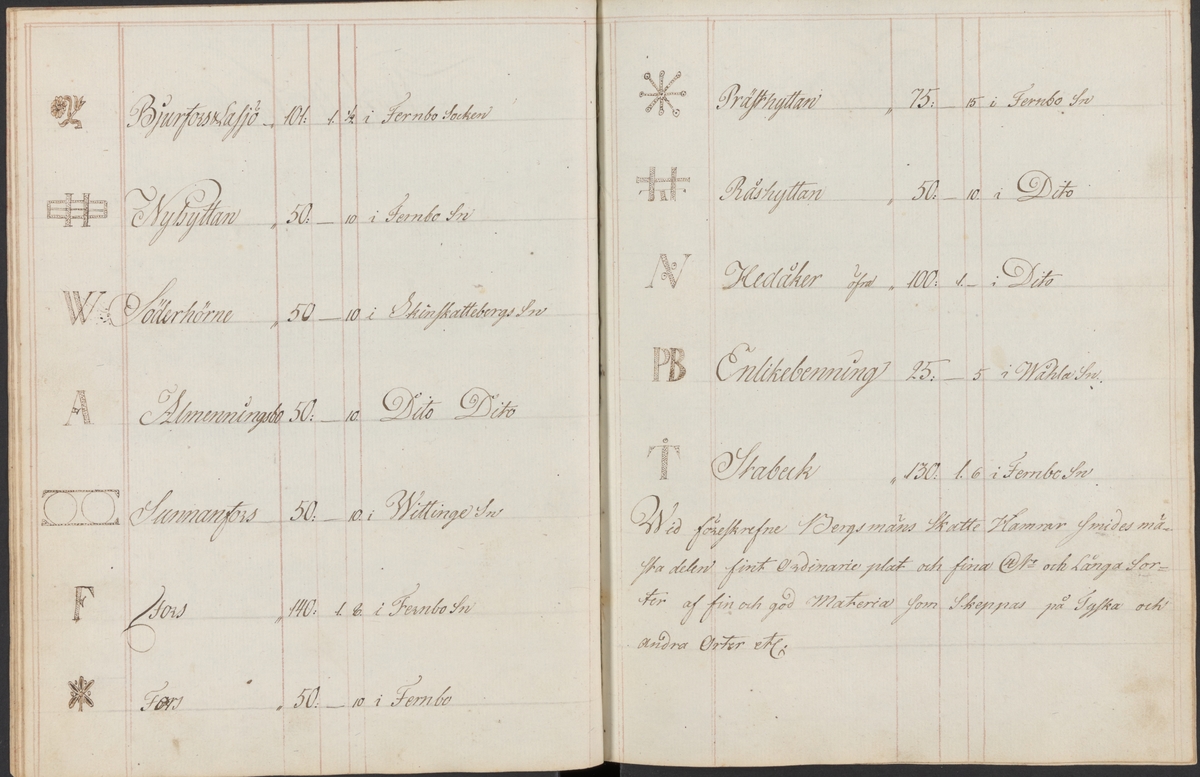 Bjurfors & Lasjö „ 101: 1. ½ i Fernbo Socken
H Nyhyttan „ 50: — 10 i Fernbo Sn
W Söderhörne „ 50 — 10 i Skinskattebergs Sn
A Almenningsbo 50: — 10. Dito Dito
Sunnanfors 50: — 10. i Wittinge Sn
F Fors „ 140: 1. 8. i Fernbo Sn
Fors „ 50: — 10 i Fernbo
Prästhyttan „ 75: — 15 i Fernbo Sn
H Råshyttan „ 50: — 10. i Dito
N Hedåker öfre „ 100: 1. — i Dito
PB Enlikebenning 25: — 5. i Wåhla Sn.
T Skabeck „ 130: 1. 6 i Fernbo Sn.
Wid föreskrefne Bergsmäns Skatte Hamrar Smides mä-
sta delen fint Ordinarie plat och fina och Långa Sor=
ter af fin och god Materia som Skeppas på Tyska och
andra Orter etc: